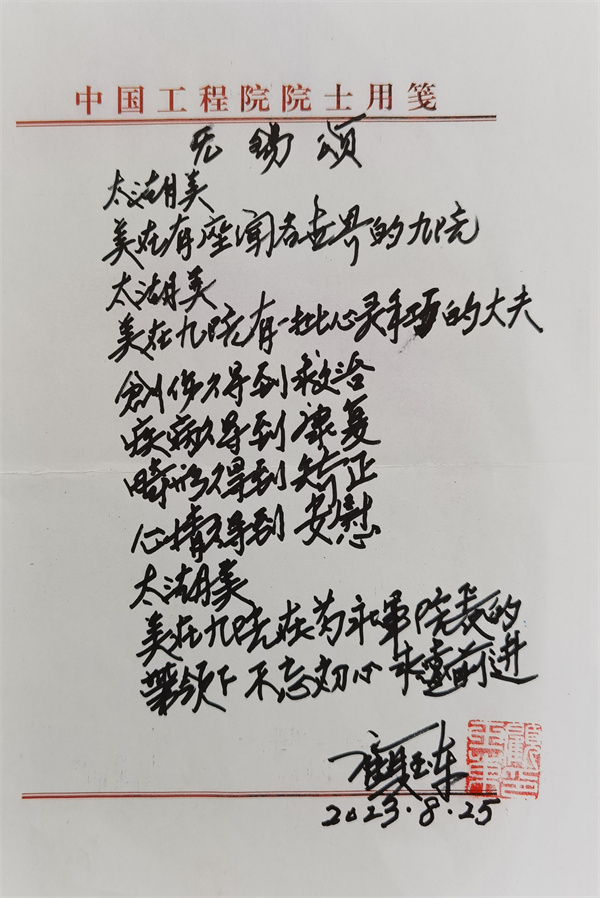 中国工程院院士用笺
无锡颂
太湖美
美在有座闻名世界的九院
太湖美
美在九院有一批心灵手巧的大夫
創伤得到救治
疾病得到康复
畸形得到矫正
心情得到安慰
太湖美
美在九院在芮永軍院长的
带领下 不忘初心 永远前进
顾玉东
2023.8.25